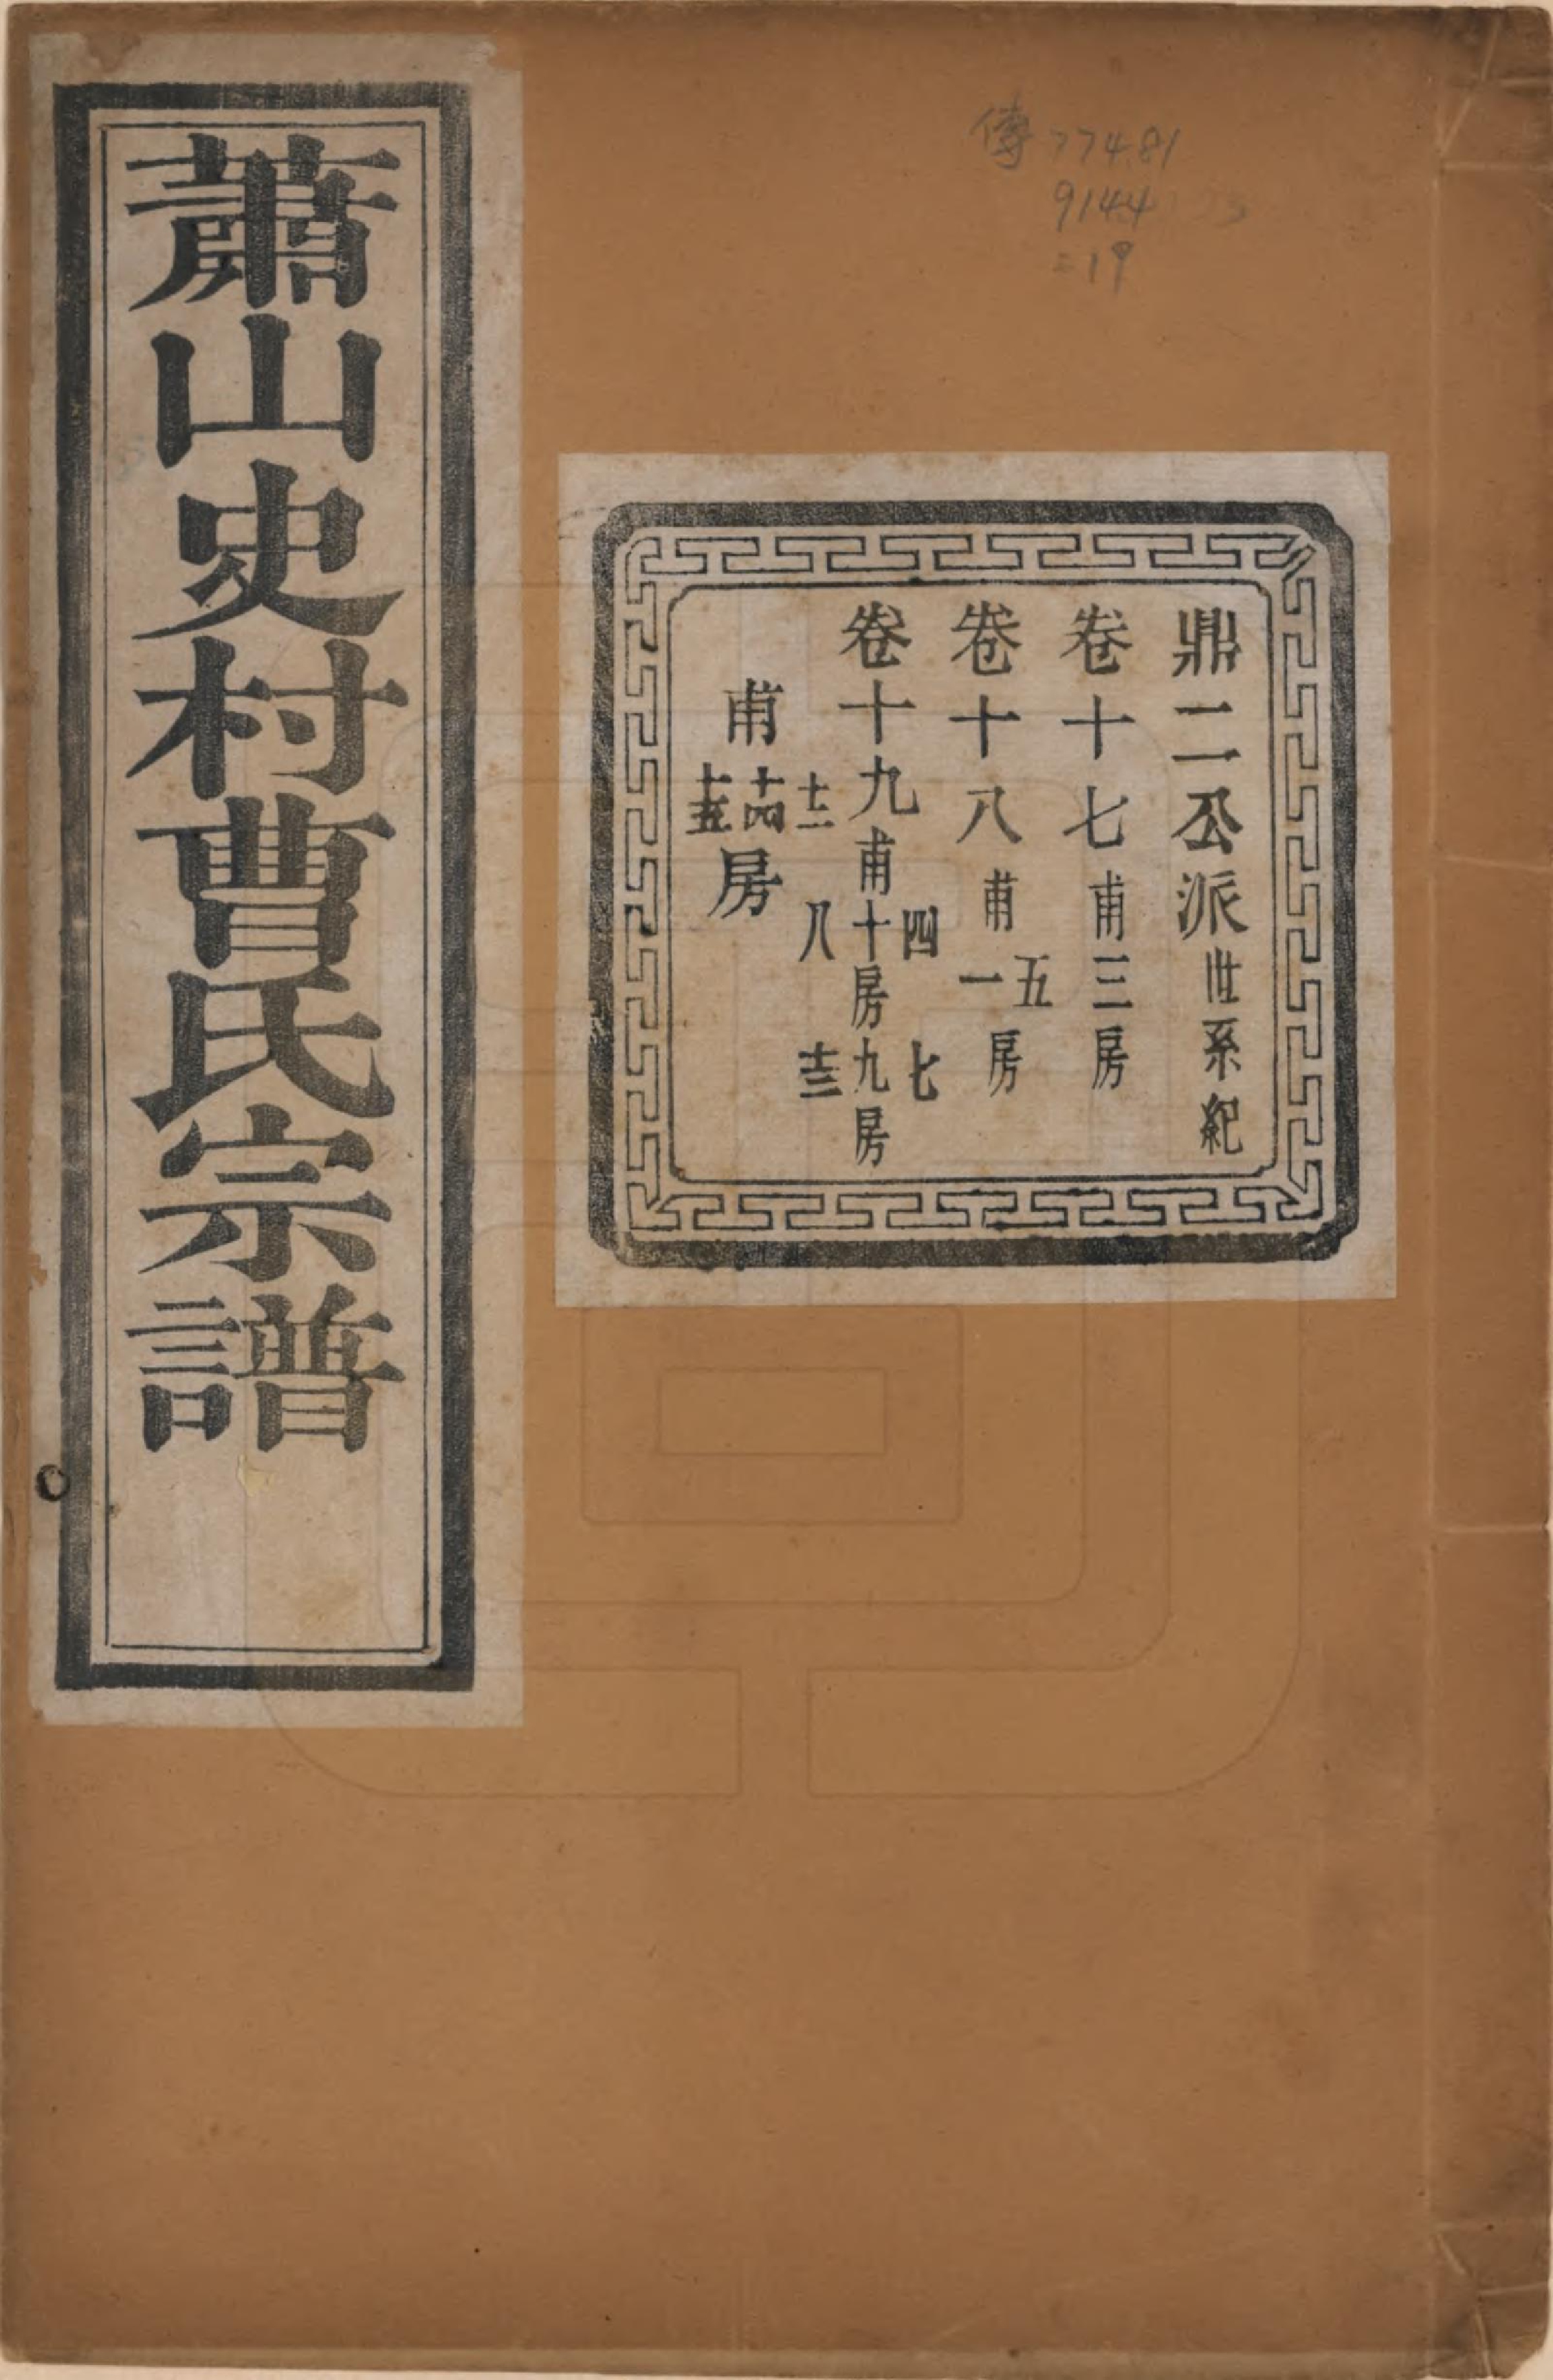 蕭山史村曹氏宗譜
傳 774.81
9144
=19
鼎二公派世系紀
卷十七甫三房
卷十八甫五一房
卷十九甫四十八房七九十三房
甫十二十四十五房